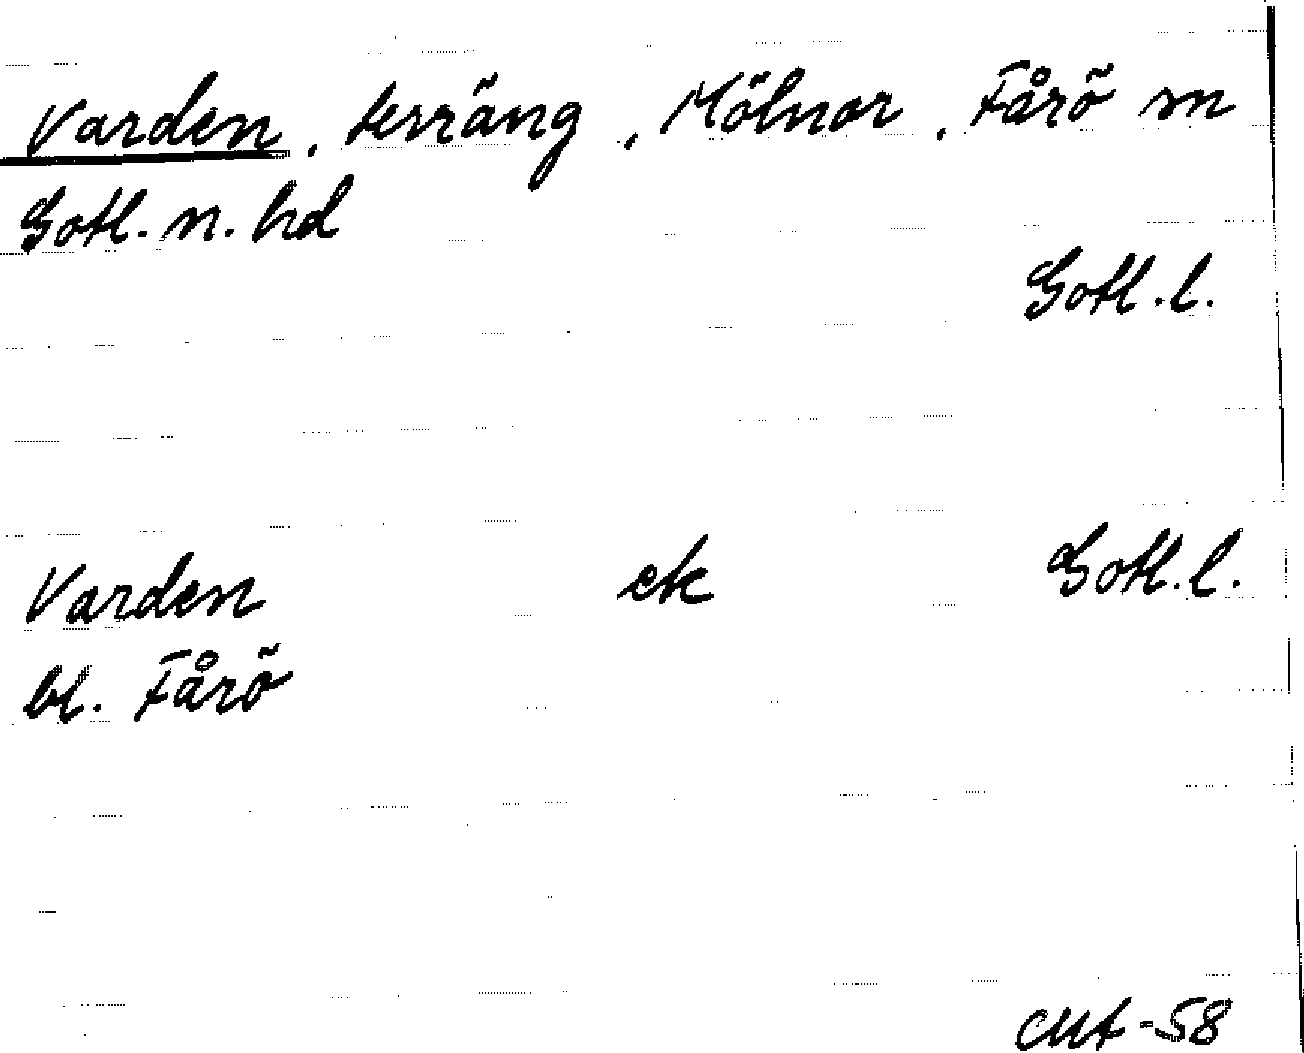 Varden, terräng, Mölnor, Fårö sn
Gotl. n. hd
Gotl. l.
Varden ek Gotl. l.
bl. Fårö
-58